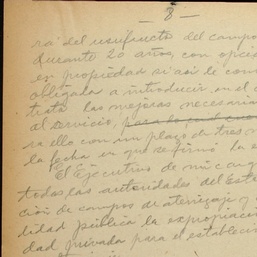 - 8 -
rá del usufructo del campo
durante 20 años, con opci
en propiedad si así le conv
obligada a introducir en el c
trato las mejoras necesaria
al servicio, para lo cual cue
ra ello con un plazo de tres a
la fecha en que se firmó la e
El Ejecutivo de mi cargo
todas las autoridades del Esta
ción de campos de aterrizaje y
lidad pública la expropiació
dad privada para el establecim